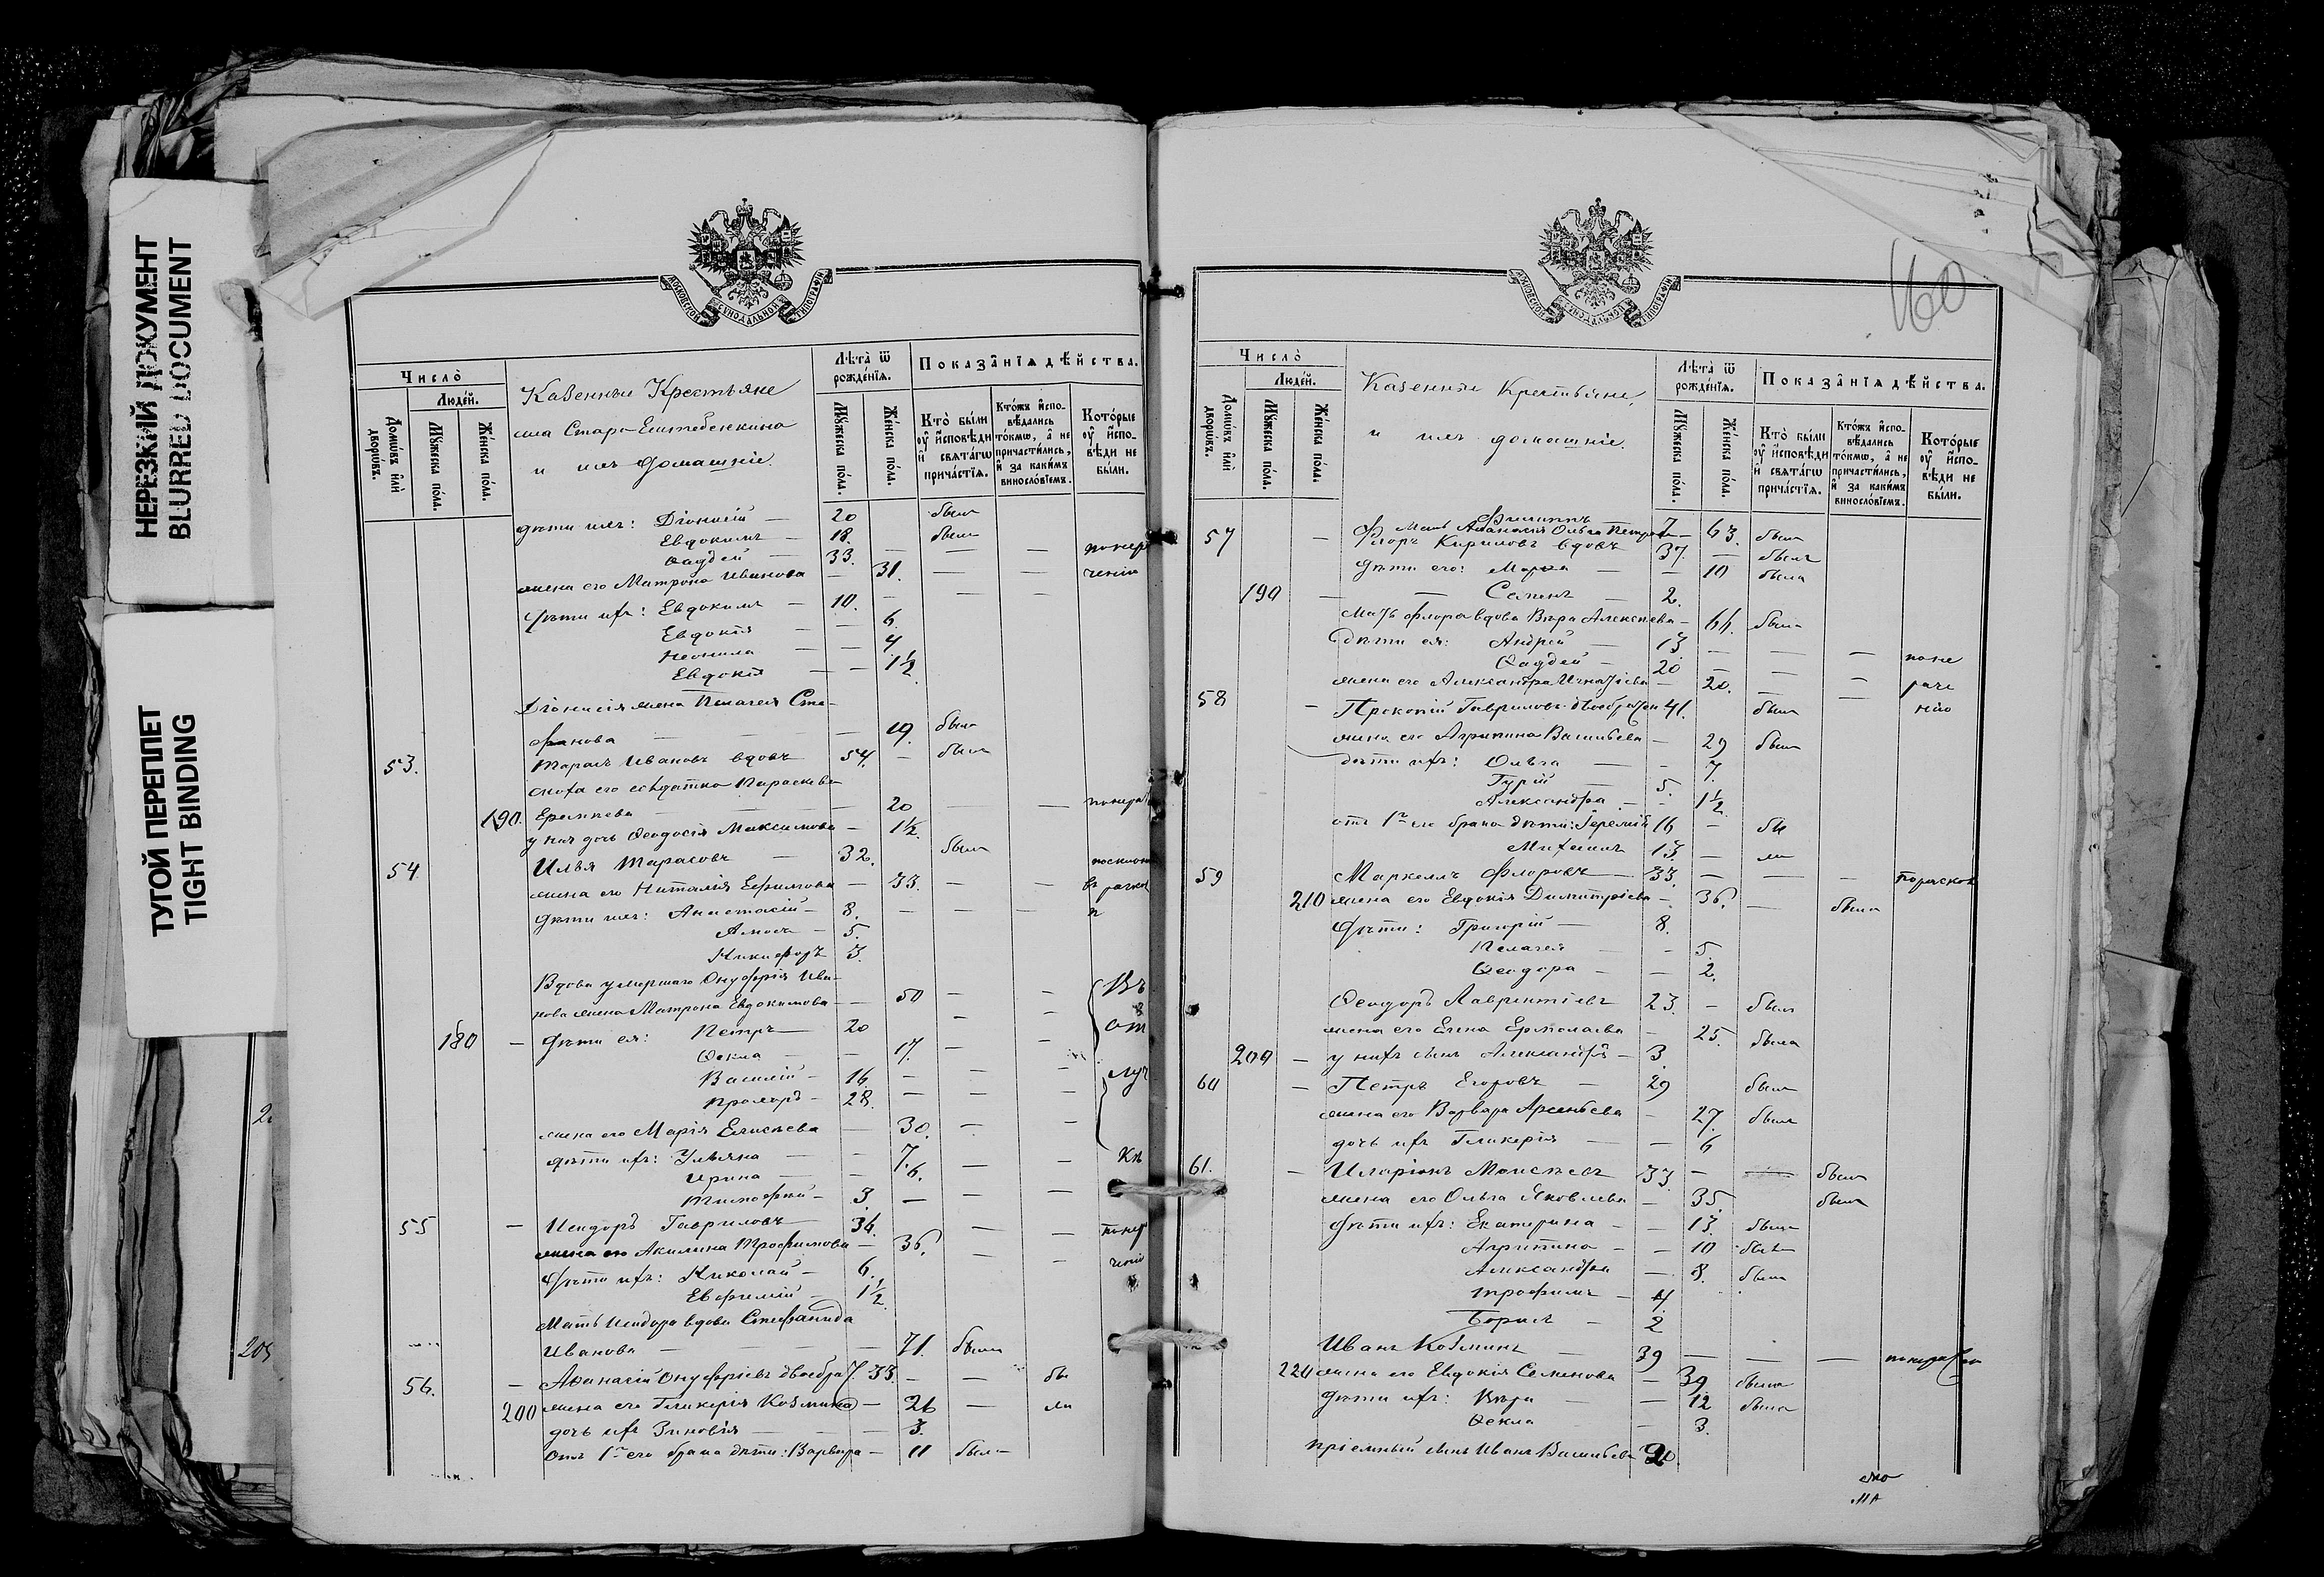 НЕРЕЗКИЙ ДОКУМЕНТ
BLURRED DOCUMENT
ТУГОЙ ПЕРЕПЛЕТ
TIGHT BINDING
МОСКОВСКОЙ СѴНОДАЛЬНОЙ ТИПОГРАФІИ
Число̀
Людей.
Домѡвъ и҆лѝ дворѡвъ.
Мꙋ́жеска по́ла.
Же́нска по́ла.
Казенные Крестьяне
села Старо-
и ихъ домашніе.
Лѣ́та ѿ рожде́нїѧ.
Мꙋ́жеска по́ла.
Же́нска по́ла.
Показа̑нїѧ дѣ́йства.
Кто̀ бы́ли ᲂу҆ и҆сповѣ́ди и҆ свѧта́гѡ прича́стїѧ.
Кто́жъ и҆спо-
вѣ́дались
то́кмѡ, а҆ не
причасти́лись,
и҆ за каки́мъ
винослов́їемъ.
Кото́рые
ᲂу҆ и҆спо-
вѣ́ди не
бы́ли.
дѣти ихъ: Діонисій — 20 былъ
Евдокимъ — 18. былъ
Ѳаддей — 33. — — —
жена его Матрона Иванова — 31. — —
дѣти ихъ: Евдокимъ — 10. — — —
Евдокія — — 6.
Неонила — — 4
Евдокія — — 1½
Діонисія жена Пелагея Сте-
фанова — — 19. была
53. Тарасъ Ивановъ вдовъ 54. — былъ
сноха его солдатка Параскева
190. — — 20 — —
у нея дочь Ѳеодосія Максимова — 1½
54. Илья Тарасовъ — 32. былъ
жена его Наталія Ефимова — 33. — —
дѣти ихъ: Анастасій — 8. — — —
Амосъ — 5.
Никифоръ 3.
Вдова умершаго Онуфрія Ива-
нова жена Матрона Евдокимова — 50 — — Въ
180 — дѣти ея: Петръ — 20 — — от
Ѳекла — — 17. — —
Василій — 16. — — — луч
Прохоръ — 28. — — —
жена его Марія Елисѣева — 30. — —
дѣти ихъ: Ульяна — — 7. — — кѣ
Ирина — — 6.
Тимофей — 3. — — —
55 — Исидоръ Гавриловъ 36. — —
жена его Акилина Трофимова — 36. — —
дѣти ихъ: Николай — 6.
Евфимій — 1½
Мать Исидора вдова Стефанида
Иванова — — 71. была
56. — Аѳанасій Онуфріевъ 33. — — бы
200 жена его Гликерія Козмина — 26 — ли
дочь ихъ Зиновія — — 3.
отъ 1го его брака дѣти: Варвара — 11 была
60
МОСКОВСКОЙ СѴНОДАЛЬНОЙ ТИПОГРАФІИ
Число̀
Людей.
Домѡвъ и҆лѝ дворѡвъ.
Мꙋ́жеска по́ла.
Же́нска по́ла.
Казенные Крестьяне,
и ихъ домашніе.
Лѣ́та ѿ рожде́нїѧ.
Мꙋ́жеска по́ла.
Же́нска по́ла.
Показа̑нїѧ дѣ́йства.
Кто̀ бы́ли ᲂу҆ и҆сповѣ́ди и҆ свѧта́гѡ прича́стїѧ.
Кто́жъ и҆спо-
вѣ́дались
то́кмѡ, а҆ не
причасти́лись,
и҆ за каки́мъ
винослов́їемъ.
Кото́рые
ᲂу҆ и҆спо-
вѣ́ди не
бы́ли.
Филиппъ 7
Мать Аѳанасія Ольга Петрова — 63. была
57 — Флоръ Кириловъ вдовъ 37. — былъ
дѣти его: Марѳа — — 10 была
190 — — Семенъ — 2.
Мать Флора вдова Вѣра Алексѣева — 64. была
дѣти ея: Андрей — 13. — — — поне
Ѳаддей — 20 — —
жена его Александра Игнатіева — 20. — — раче
58 — Прокопій Гавриловъ 41. былъ нію
жена его Агрипина Васильева — 29 была
дѣти ихъ: Ольга — — 7.
Гурій — 5.
Александра — — 1½
отъ 1го его брака дѣти: Іеремій 16 — бы
Михаилъ 13. — ли
59 Маркеллъ Флоровъ — 33. — — —
210 жена его Евдокія Димитріева — 36. — была
дѣти: Григорій — 8.
Пелагея — — 5.
Ѳеодора — — 2.
Ѳеодоръ Лаврентіевъ 23. — былъ
жена его Елена Ермолаева — 25. была
200 — у нихъ сынъ Александръ — 3.
60 — Петръ Егоровъ — 29 былъ
жена его Варвара Арсеньева — 27. была
дочь ихъ Гликерія — — 6
61. — Иларіонъ Моисеевъ 33. — былъ
жена его Ольга Яковлева — 35. была
дѣти ихъ: Екатерина — — 13. была
Агрипина — — 10 была
Александра — 8. была
Трофимъ — 4.
Борисъ — 2
Иванъ Козминъ — 39 — — —
220 жена его Евдокія Семенова — 39 была
дѣти ихъ: Вѣра — — 12 была
Ѳекла — — 3.
пріемный сынъ Иванъ Васильевъ 20.